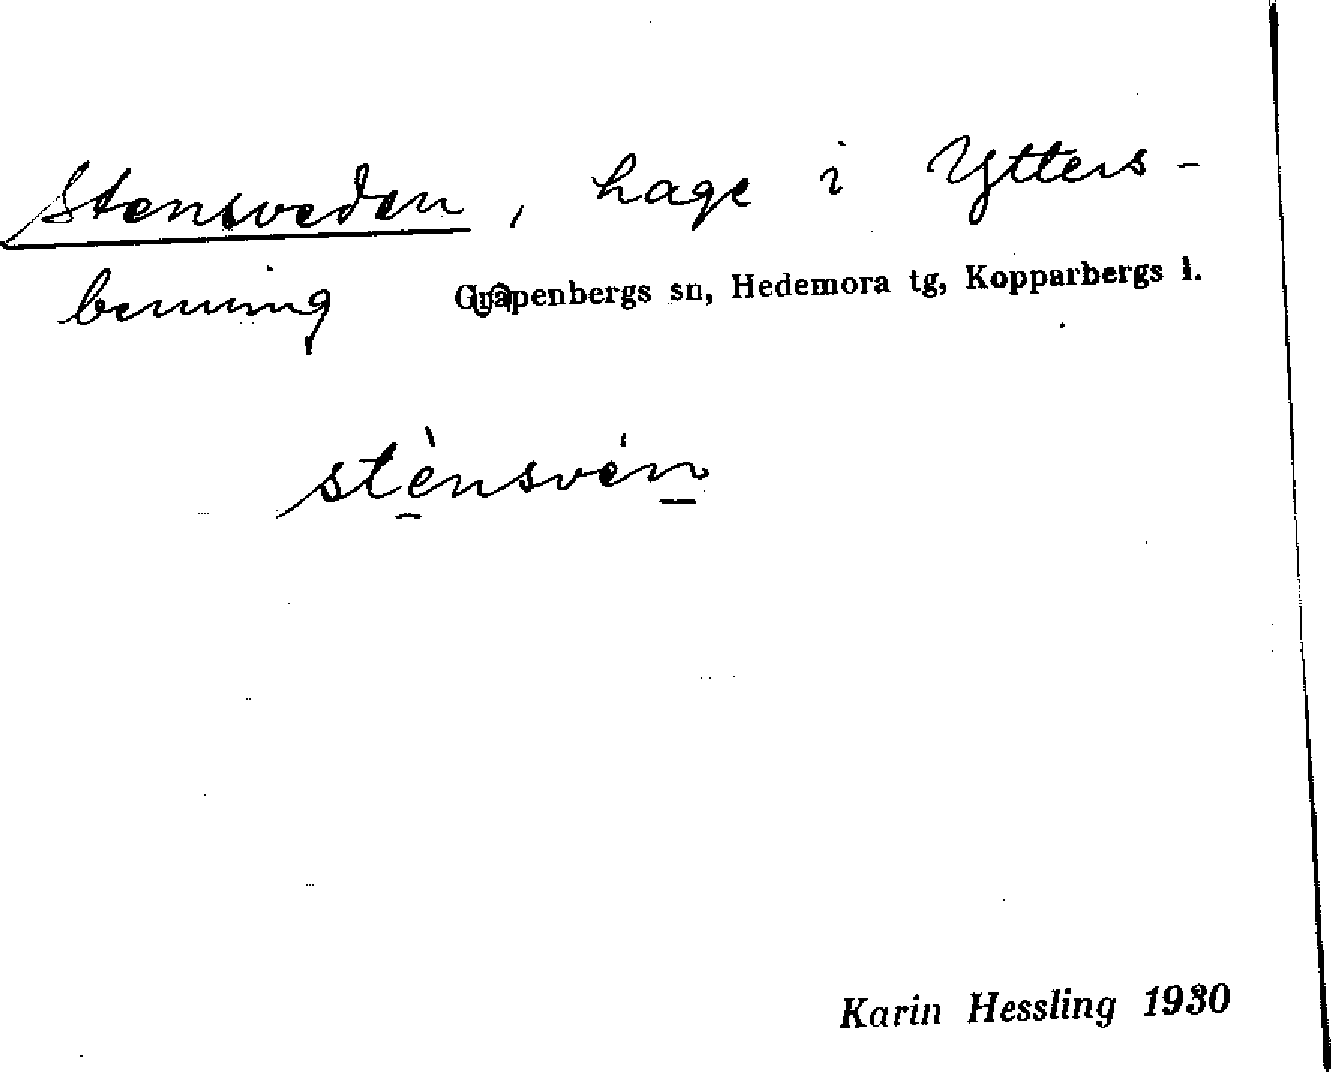 Stensveden, hage i Ytters-
benning Garpenbergs sn, Hedemora tg, Kopparbergs l.
stènsvén
Karin Hessling 1930